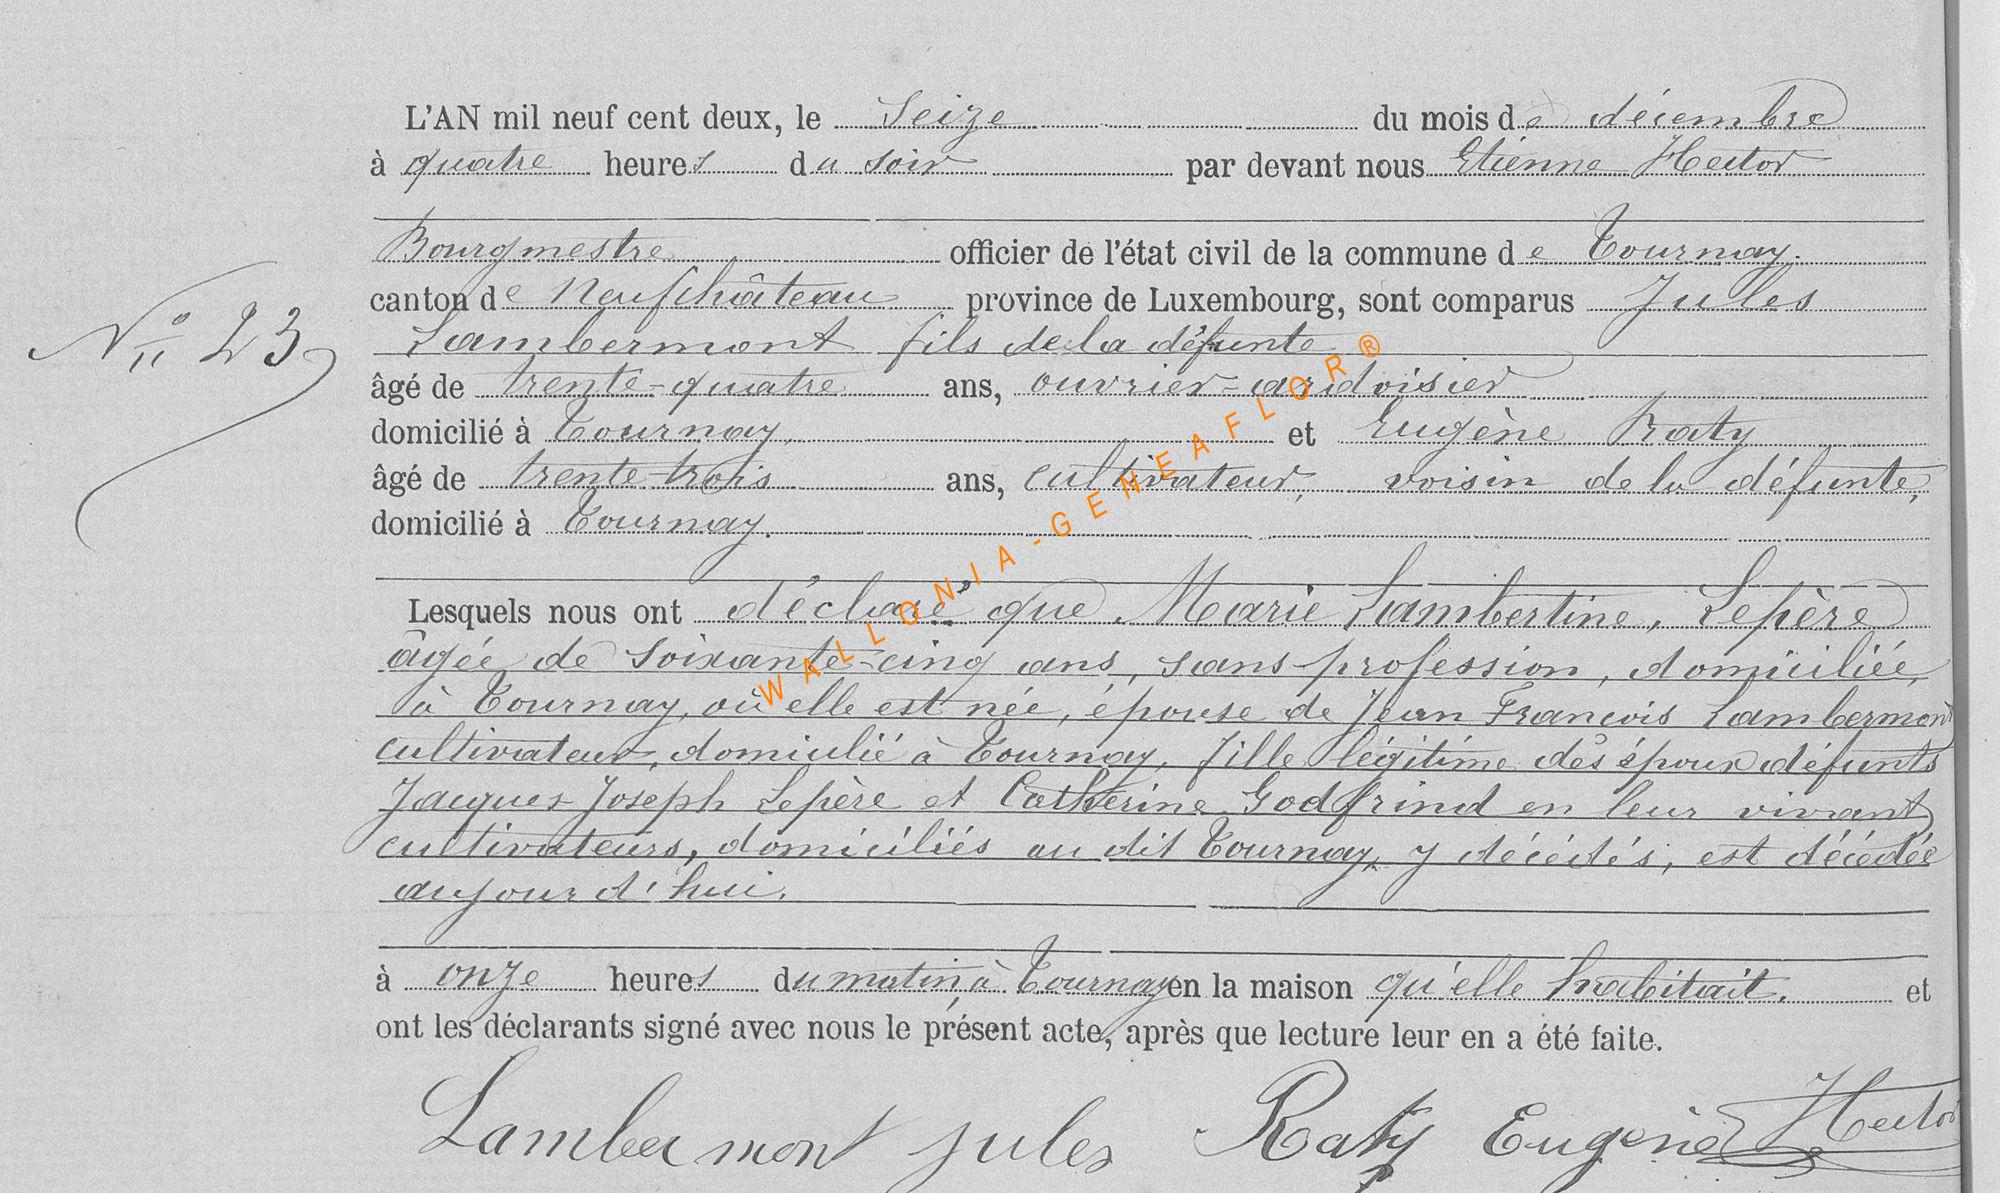 L'AN mil neuf cent deux, le Seize du mois de décembre
à quatre heures du soir par devant nous Etienne Hector
Bourgmestre officier de l'état civil de la commune de Tournay.
canton de Neufchâteau province de Luxembourg, sont comparus Jules
N° 23
Lambermont fils de la défunte
âgé de trente-quatre ans, ouvrier-ardoisier
domicilié à Tournay, et Eugène Raty
âgé de trente-trois ans, cultivateur, voisin de la défunte,
domicilié à Tournay.
Lesquels nous ont déclaré que Marie Lambertine, Lepère
âgée de soixante-cinq ans, sans profession, domiciliée,
à Tournay, où elle est née, épouse de Jean François Lambermont
cultivateur, domicilié à Tournay, fille légitime des époux défunts
Jacques Joseph Lepère et Catherine Godfrind en leur vivant
cultivateurs, domiciliés au dit Tournay, y décédés, est décédée
aujourd'hui.
à onze heures du matin, à Tournay en la maison qu'elle habitait. et
ont les déclarants signé avec nous le présent acte, après que lecture leur en a été faite.
Lambermont Jules Raty Eugène Hector
WALLONIA-GENEAFLOR®